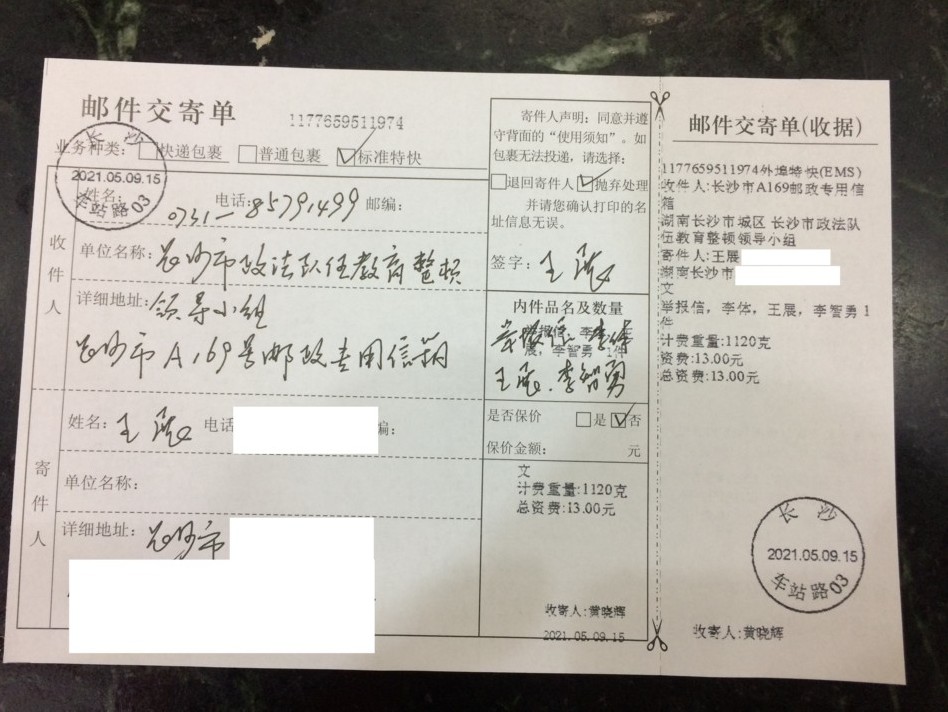 邮件交寄单
1177659511974
业务种类: 快递包裹 普通包裹 标准特快
长沙
2021.05.09.15
车站路03
收件人
姓名:
电话: 0731-85791499 邮编:
单位名称: 长沙市政法队伍教育整顿
领导小组
详细地址:
长沙市A169号邮政专用信箱
寄件人
姓名: 王展 电话 编:
单位名称:
详细地址: 长沙市
寄件人声明: 同意并遵
守背面的“使用须知”。如
包裹无法投递, 请选择:
退回寄件人 抛弃处理
并请您确认打印的名
址信息无误。
签字: 王展
内件品名及数量
举报信, 李体
王展, 李智勇
展, 李智勇 1件
是否保价 是 否
保价金额: 元
文
计费重量:1120克
总资费:13.00元
收寄人:黄晓辉
2021.05.09.15
邮件交寄单(收据)
1177659511974外埠特快(EMS)
收件人:长沙市A169邮政专用信
箱
湖南长沙市城区 长沙市政法队
伍教育整顿领导小组
寄件人:王展
湖南长沙市
文
举报信, 李体, 王展, 李智勇 1
件
计费重量:1120克
资费:13.00元
总资费:13.00元
长沙
2021.05.09.15
车站路03
收寄人:黄晓辉